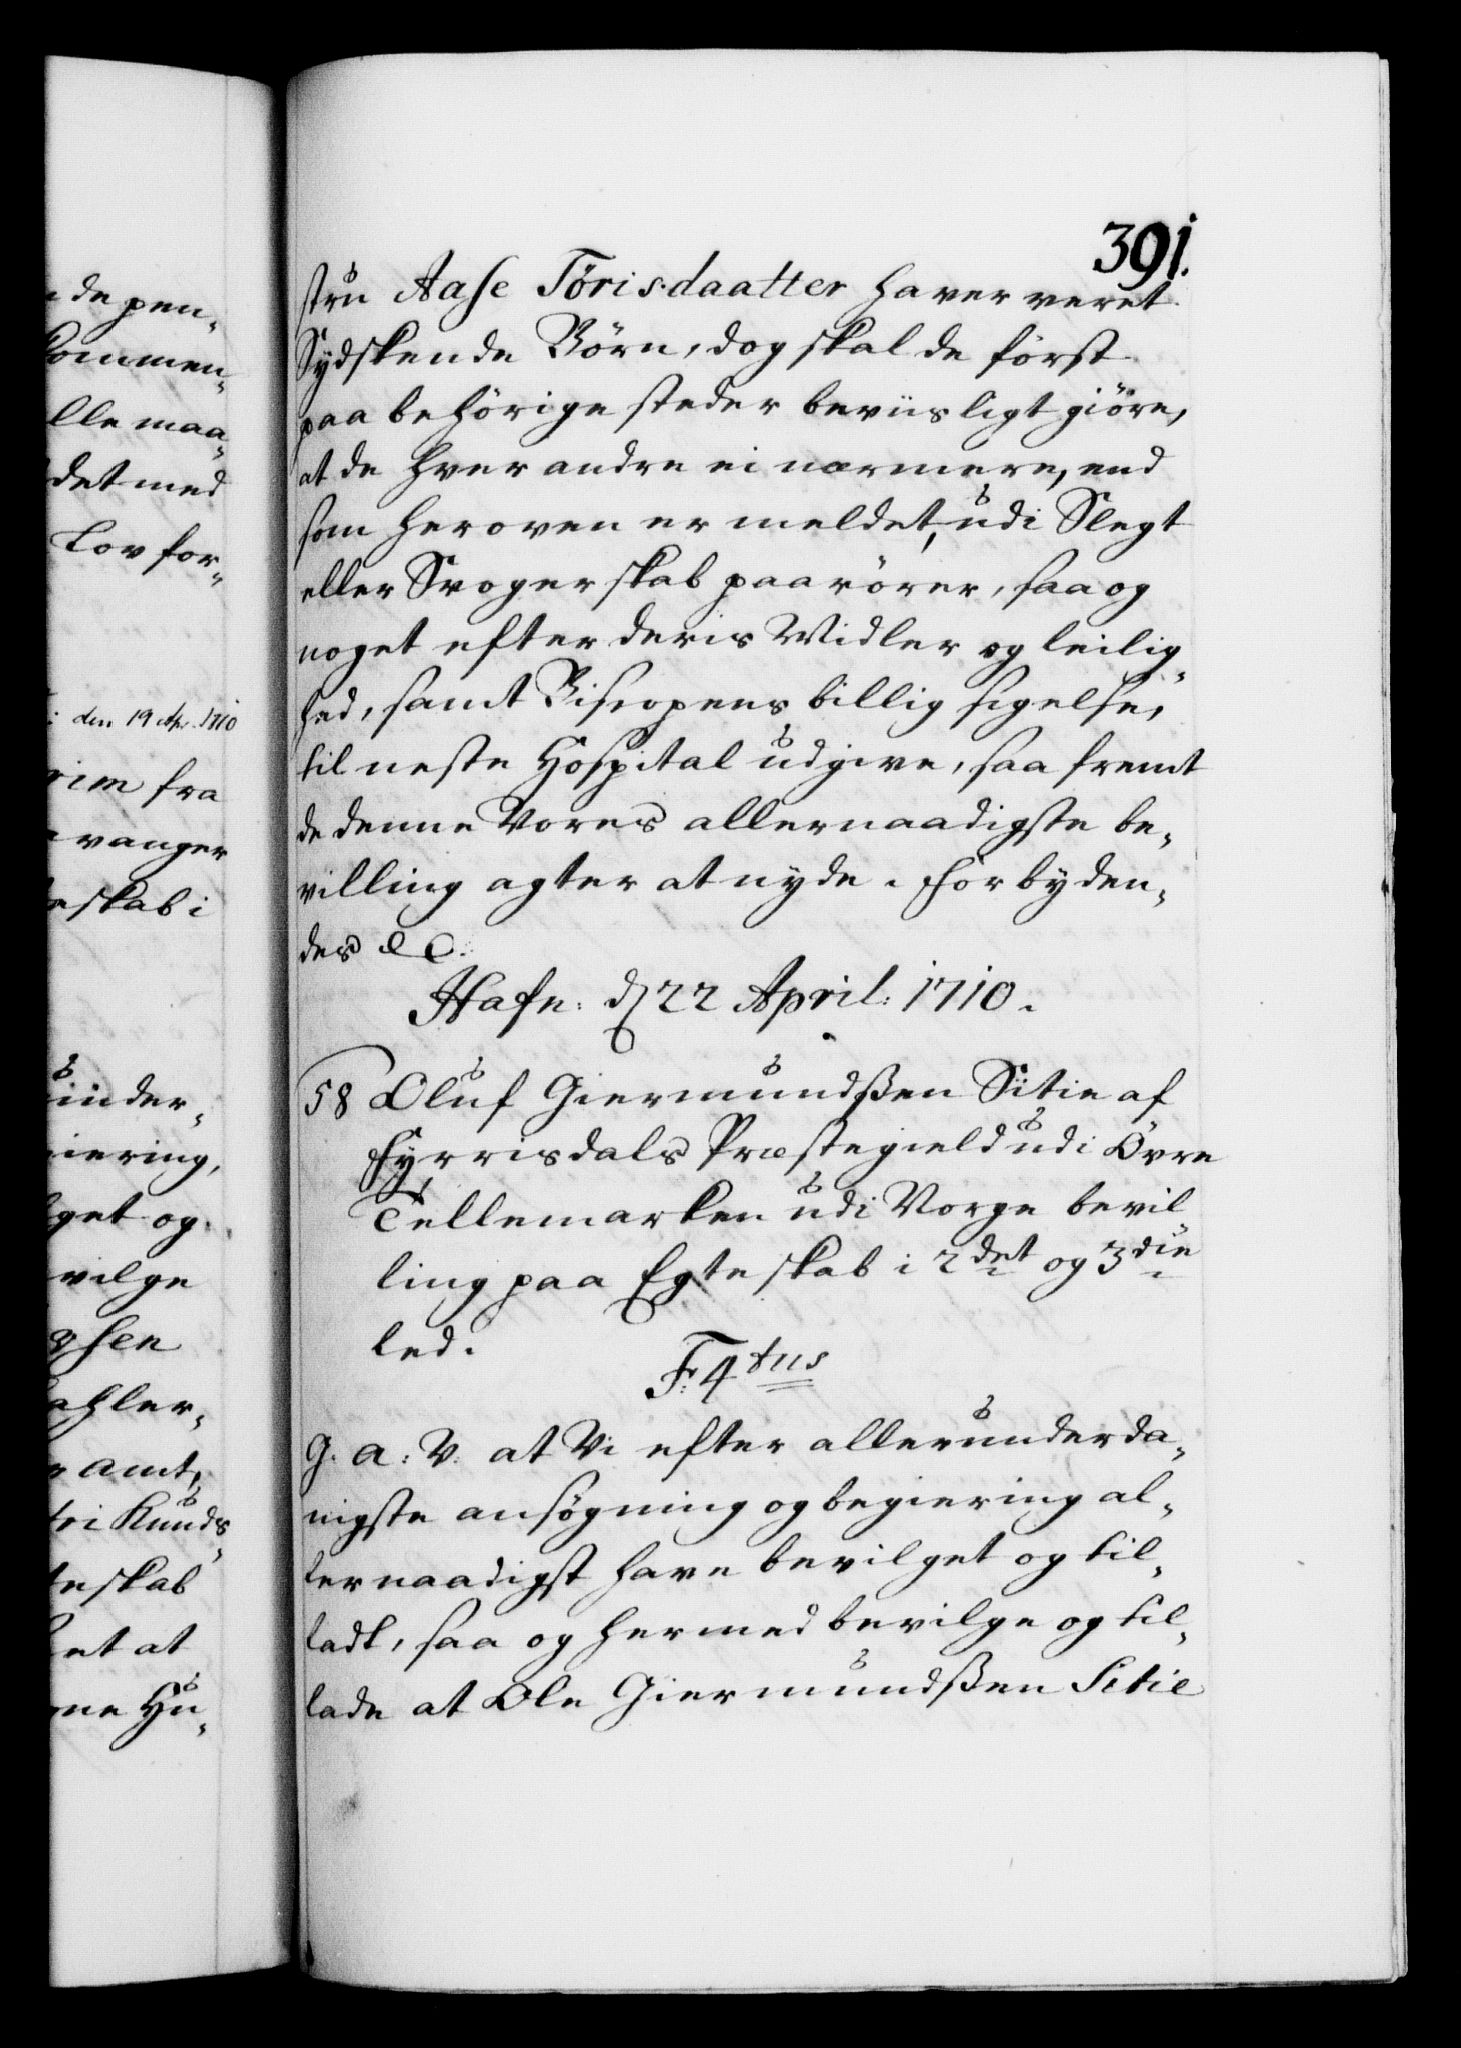 de pen¬
kommen¬
lle maa¬
det med
Lov for¬
den 19 Apr. 1710
fra
vanger
skab i
ünder¬
iering,
get og
vilge
sen
ahler¬
amt,
tri Knuds¬
teskab
et at
ne Hu¬
391.
stru Aase Tørisdaatter haver veret
Sydskende Børn, dog skal de først
paa behörige steder beviisligt giöre,
at de hver andre ei nærmere, end
som her oven er meldet, udi Slegt
eller Svogerskab paarörer, saa og
noget efter deris Midler og leilig¬
hed, samt Biscopens billig sigelse,
til neste Hospital udgive, saa fremt
de denne Vores allernaadigste be¬
villing agter at nyde. Forbyden¬
des &c.
Hafn: d 22 April: 1710.
58 Oluf Giermundßen Sitie af
Fyrrisdals Præstegield udi Övre
Tellemarken udi Norge bevil¬
ling paa Egteskab i 2det og 3die
led.
F: 4tus
G. A: V: at Vi efter allerunderda¬
nigste ansøgning og begiering al¬
lernaadigst have bevilget og til¬
ladt, saa og hermed bevilge og til¬
lade at Ole Giermundßen Sitie